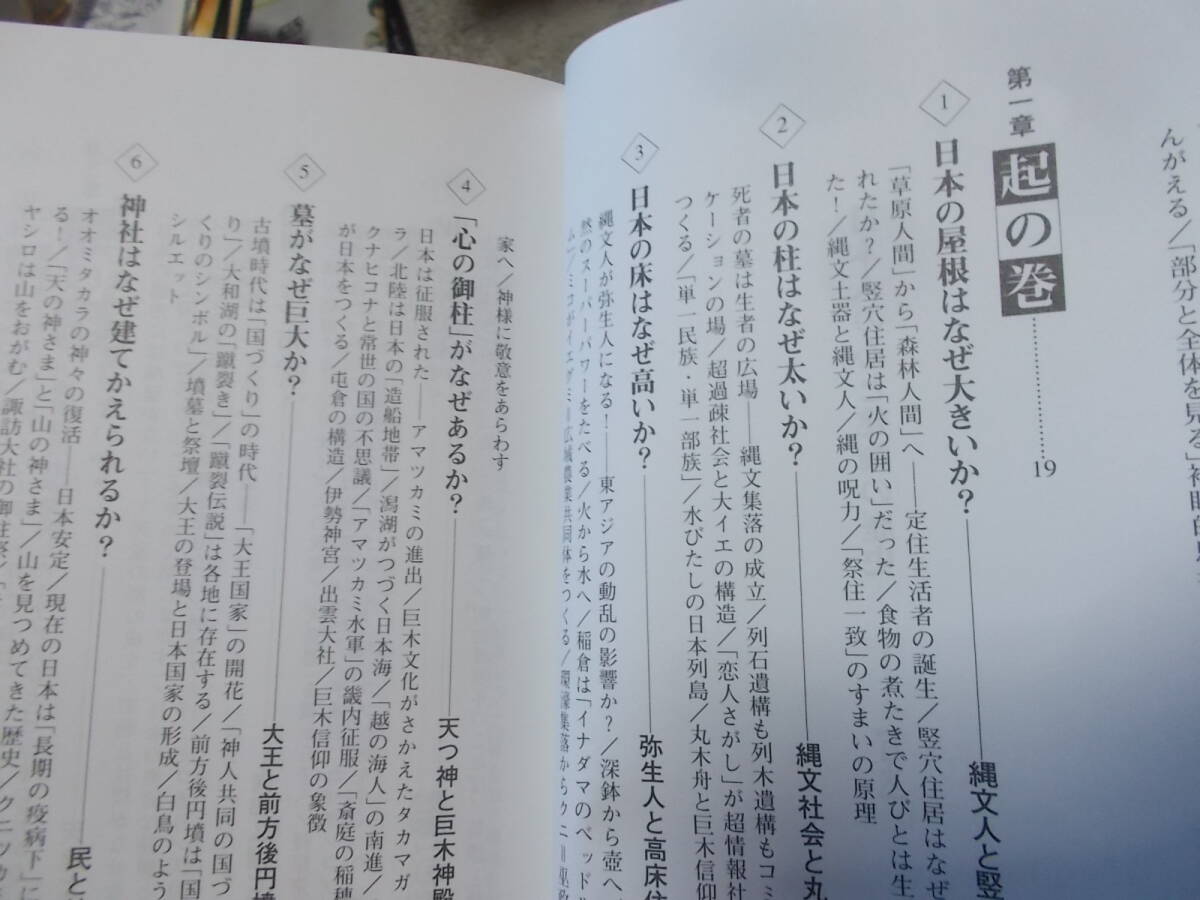 んがえる／「部分と全体を見る」
第一章 起の巻…………19
1 日本の屋根はなぜ大きいか？――縄文人と竪
「草原人間」から「森林人間」へ――定住生活者の誕生／竪穴住居はなぜ
れたか？／竪穴住居は「火の囲い」だった／食物の煮たきで人びとは生
た！／縄文土器と縄文人／縄の呪力／「祭住一致」のすまいの原理
2 日本の柱はなぜ太いか？――縄文社会と丸
死者の墓は生者の広場――縄文集落の成立／列石遺構も列木遺構もコミ
ケーションの場／超過疎社会と大イエの構造／「恋人さがし」が超情報社
つくる／「単一民族・単一部族」／水びたしの日本列島／丸木舟と巨木信仰
3 日本の床はなぜ高いか？――弥生人と高床住
縄文人が弥生人になる！――東アジアの動乱の影響か？／深鉢から壺へ
然のスーパーパワーをたべる／火から水へ／稲倉は「イナダマのベッド
ム」／ミコがイエギミ＝広域農業共同体をつくる／環濠集落からクニ＝
家へ／神様に敬意をあらわす
4 「心の御柱」がなぜあるか？――天つ神と巨木神殿
日本は征服された――アマツカミの進出／巨木文化がさかえたタカマガ
ラ／北陸は日本の「造船地帯」／潟湖がつづく日本海／「越の海人」の南進／
クナヒコナと常世の国の不思議／「アマツカミ水軍」の畿内征服／「斎庭の稲穂
が日本をつくる／屯倉の構造／伊勢神宮／出雲大社／巨木信仰の象徴
5 墓がなぜ巨大か？――大王と前方後円墳
古墳時代は「国づくり」の時代――「大王国家」の開花／「神人共同の国づ
り」／大和湖の「蹴裂き」／「蹴裂伝説」は各地に存在する／前方後円墳は「国
くりのシンボル」／墳墓と祭壇／大王の登場と日本国家の形成／白鳥のよう
シルエット
6 神社はなぜ建てかえられるか？――民と
オオミタカラの神々の復活――日本安定／現在の日本は「長期の疫病下」に
る！／「天の神さま」と「山の神さま」／山を見つめてきた歴史／クニツカ
ヤシロは山をおがむ／諏訪大社の御柱祭／